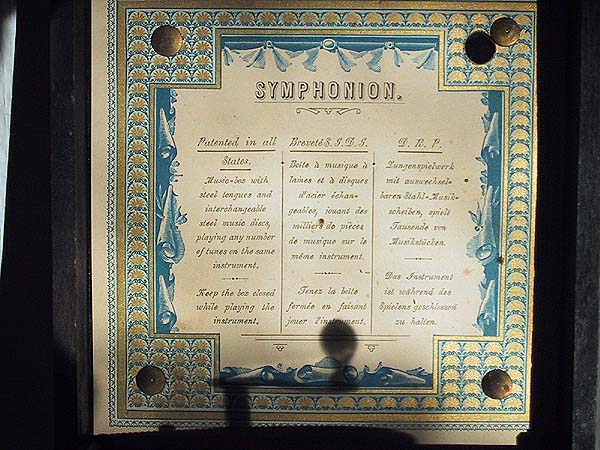 SYMPHONION.
Patented in all
States.
Music-box with
steel tongues and
interchangeable
steel music discs,
playing any number
of tunes on the same
instrument.
Keep the box closed
while playing the
instrument.
Breveté S. G. D. G.
Boîte à musique à
lames et à disques
d'acier échan-
geables, jouant des
milliers de pièces
de musique sur le
même instrument.
Tenez la boîte
fermée en faisant
jouer l'instrument.
D. R. P.
Zungenspielwerk
mit auswechsel-
baren Stahl-Musik-
scheiben, spielt
Tausende von
Musikstücken.
Das Instrument
ist während des
Spielens geschlossen
zu halten.